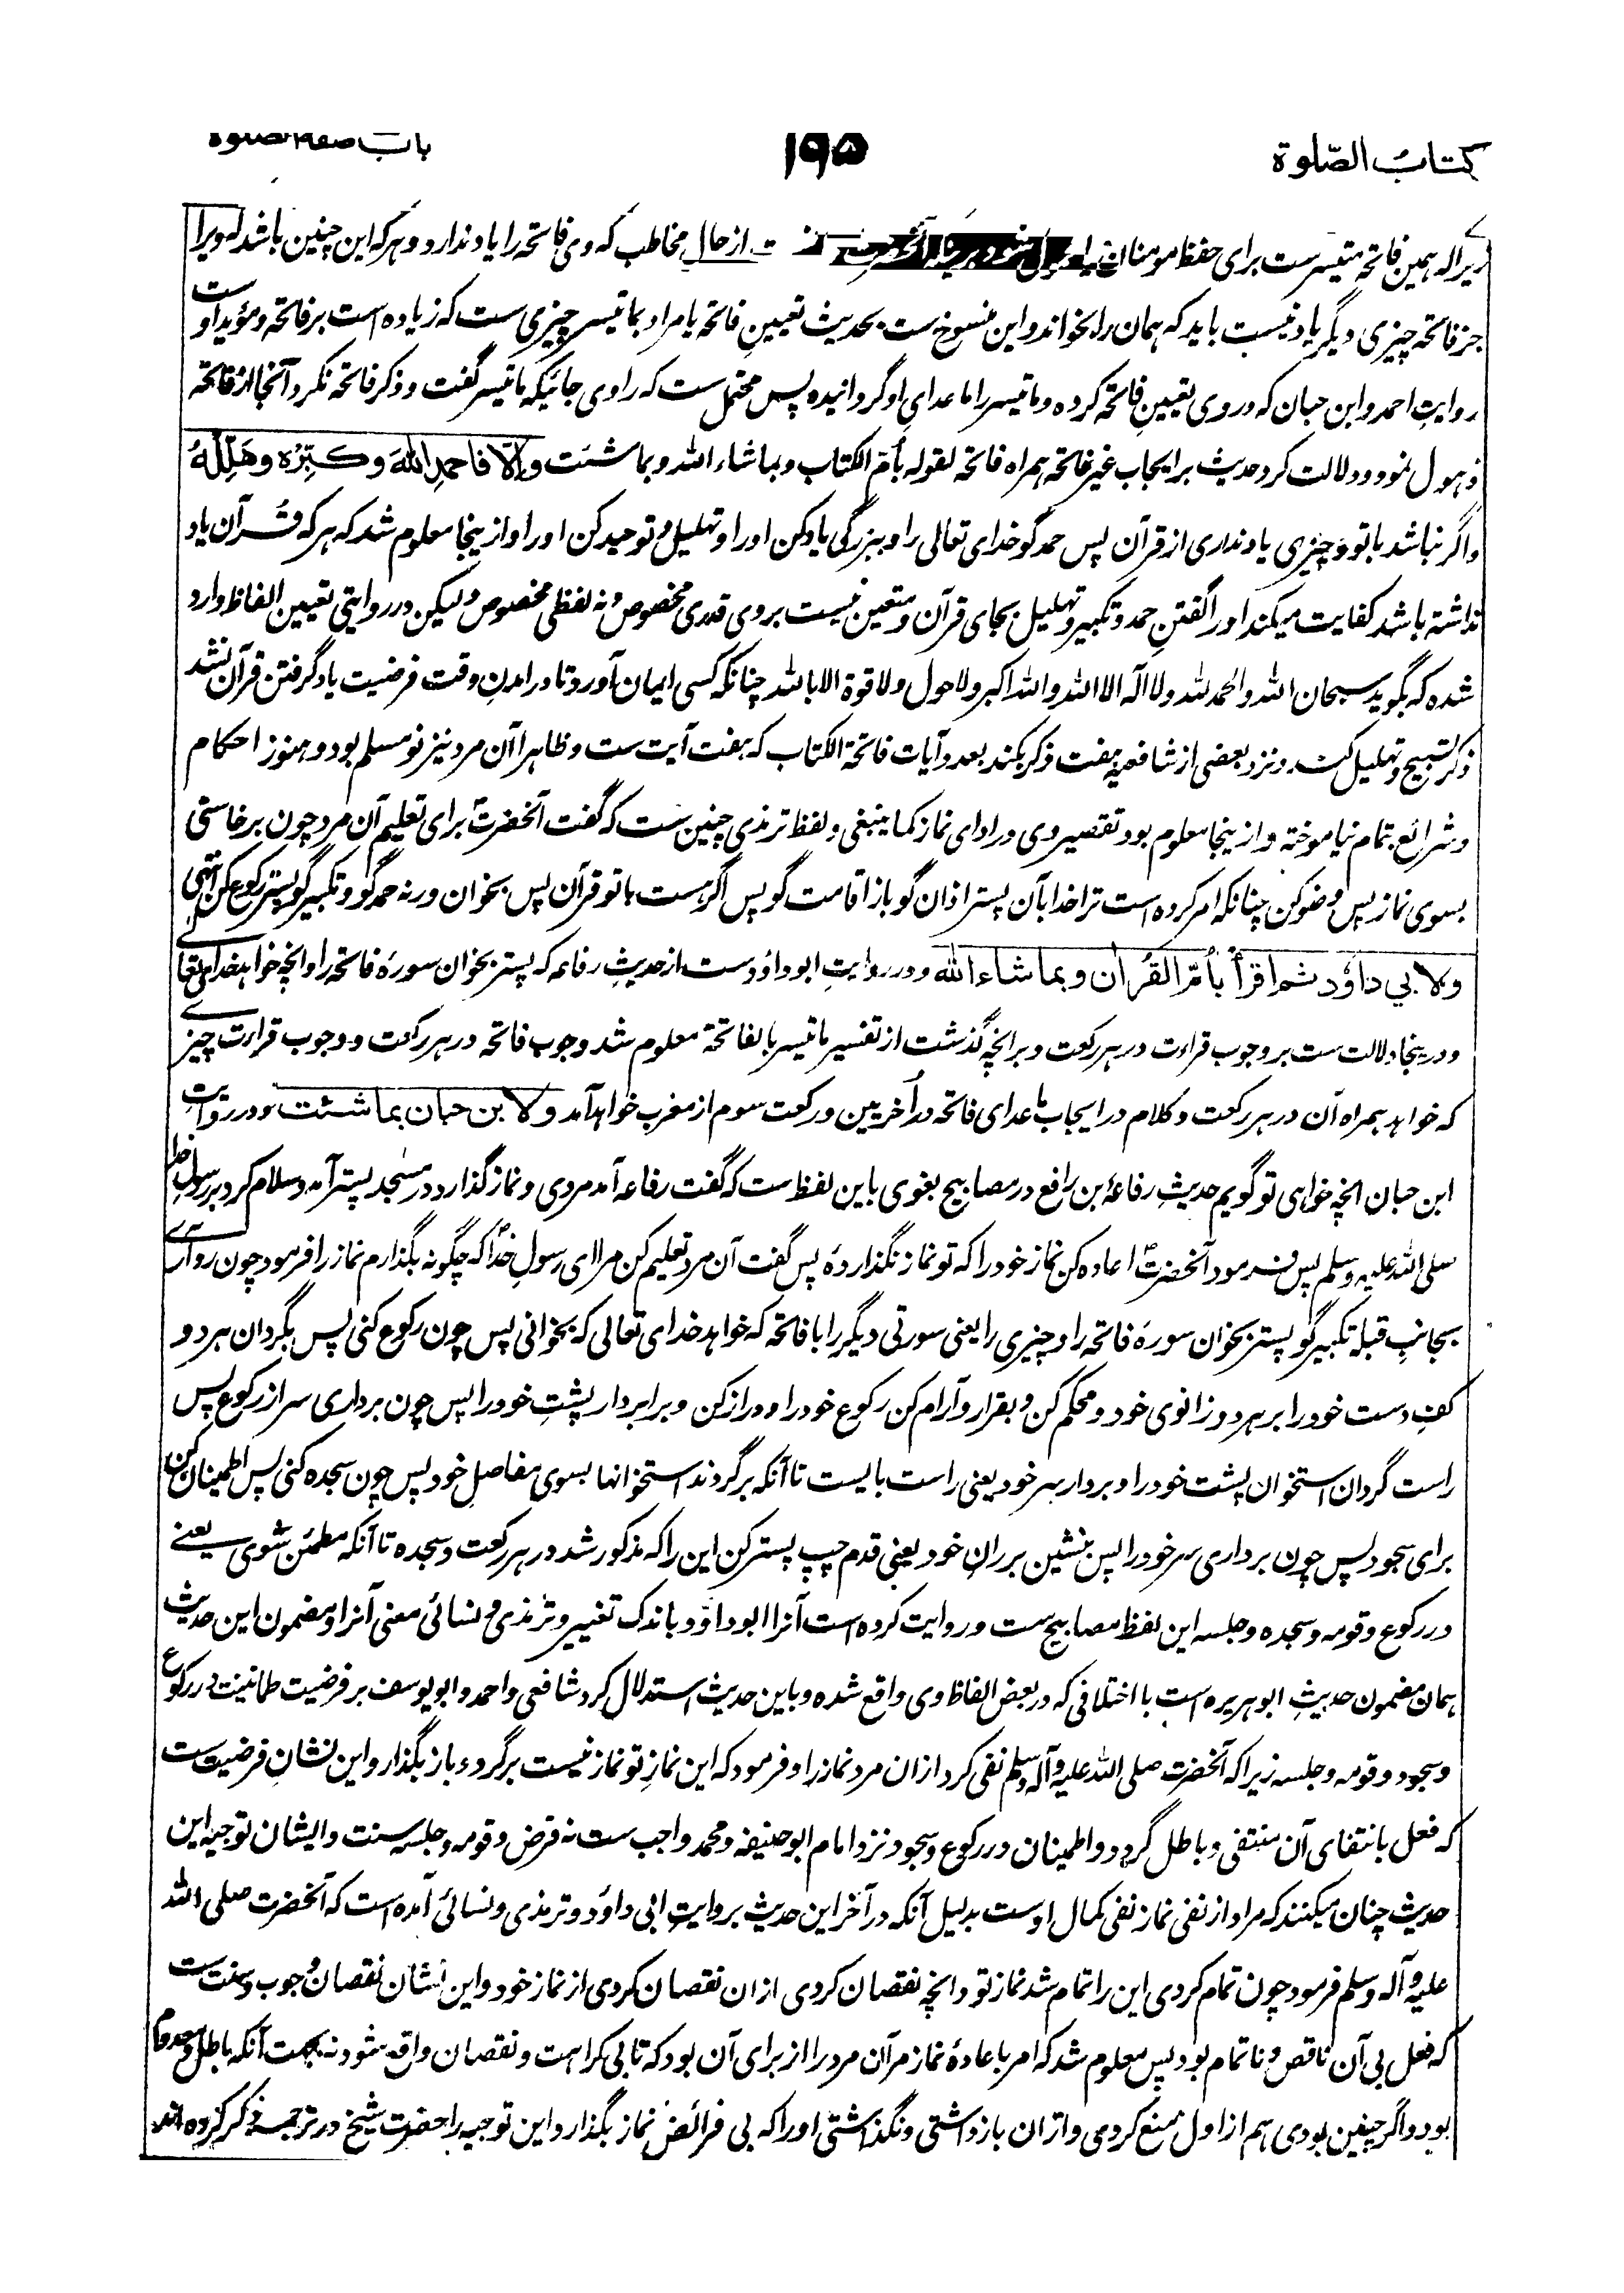 كتاب الصّلوة
١٩٥
باب صفة الصلوة
زیراکه همین فاتحه متیسرست برای حفظ مومنان از حال مخاطب که وی فاتحه را یاد ندارد و هرکه این چنین باشد که ویرا
جز فاتحه چیزی دیگر یاد نیست باید که همان را بخواند و این منسوخ ست بحدیث تعیین فاتحه یا مراد بما تیسر چیزی ست که زیاده است بر فاتحه و مؤید اوست
روایت احمد و ابن حبان که در وی تعیین فاتحه کرده و ما تیسر را ماعدای او گردانیده پس محتمل ست که راوی جائیکه ما تیسر گفت و ذکر فاتحه نکرد آنجا از فاتحه
ذهول نمود و دلالت کرد حدیث بر ایجاب غیر فاتحه همراه فاتحه لقوله بأمّ الکتاب وبما شاء الله وبما شئت والّا فاحمدِ اللهَ وكبِّرْه وهَلِّلْهُ
و اگر نباشد با تو و چیزی یاد نداری از قرآن پس حمد گو خدای تعالی را و ببزرگی یاد کن او را و تهلیل و توحید کن او را و از ینجا معلوم شد که هر که قرآن یاد
نداشته باشد کفایت میکند او را گفتن حمد و تکبیر و تهلیل بجای قرآن و متعین نیست بر وی قدری مخصوص و نه لفظی مخصوص و لیکن در روایتی تعیین الفاظ وارد
شده که بگوید سبحان الله والحمد لله ولا اله الا الله والله اکبر ولا حول ولا قوة الا بالله چنانکه کسی ایمان آورد تا در آمدن وقت فرضیت یاد گرفتن قرآن نشد
ذکر تسبیح و تهلیل کند و نزد بعضی از شافعیه هفت ذکر بکند بعدد آیات فاتحة الکتاب که هفت آیت ست و ظاهرا آن مرد نیز نو مسلم بود و هنوز احکام
و شرائع بتمام نیاموخته و از ینجا معلوم بود تقصیر وی در ادای نماز کما ینبغی و لفظ ترمذی چنین ست که گفت آنحضرت برای تعلیم آن مرد چون برخاستی
بسوی نماز پس وضو کن چنانکه امر کرده است ترا خدا بآن پستر اذان گو باز اقامت گو پس اگر هست با تو قرآن پس بخوان ورنه حمد گو و تکبیر گو پستر رکوع کن انتهی
ولابي داوٗد ثم اقرأ بأُمّ القُرآن وبما شاء الله و در روایت ابوداؤدست از حدیث رفاعه که پستر بخوان سورهٔ فاتحه را و انچه خواهد خدای تعالی
و درینجا دلالت ست بر وجوب قراءت در هر رکعت و بر انچه گذشت از تفسیر ما تیسر بالفاتحة معلوم شد وجوب فاتحه در هر رکعت و وجوب قراءت چیزی
که خواهد همراه آن در هر رکعت و کلام در ایجاب ماعدای فاتحه در أخریین و رکعت سوم از مغرب خواهد آمد ولابن حبان بما شئت و در روایت
ابن حبان انچه خواهی تو گویم حدیث رفاعه ابن رافع در مصابیح بغوی باین لفظ ست که گفت رفاعه آمد مردی و نماز گذارد در مسجد پستر آمد و سلام کرد بر رسول خدا
صلی الله علیه وسلم پس فرمود آنحضرت اعاده کن نماز خود را که تو نماز نگذاردهٔ پس گفت آن مرد تعلیم کن مرا ای رسول خدا که چگونه بگذارم نماز را فرمود چون رو آری
بجانب قبله تکبیر گو پستر بخوان سورهٔ فاتحه را و چیزی را یعنی سورتی دیگر را با فاتحه که خواهد خدای تعالی که بخوانی پس چون رکوع کنی پس بگردان هر دو
کف دست خود را بر هر دو زانوی خود و محکم کن و بقرار و آرام کن رکوع خود را و دراز کن و برابر دار پشت خود را پس چون برداری سر از رکوع پس
راست گردان استخوان پشت خود را و بردار سر خود یعنی راست بایست تا آنکه برگردند استخوانها بسوی مفاصل خود پس چون سجده کنی پس اطمینان کن
برای سجود پس چون برداری سر خود را پس بنشین بر ران خود یعنی قدم چپ پستر کن این را که مذکور شد در هر رکعت و سجده تا آنکه مطمئن شوی یعنے
در رکوع و قومه و سجده و جلسه این لفظ مصابیح ست و روایت کرده است آنرا ابوداؤد باندک تغییر و ترمذی و نسائی معنی آنرا و مضمون این حدیث
همان مضمون حدیث ابوهریره است با اختلافی که در بعض الفاظ وی واقع شده و باین حدیث استدلال کرد شافعی و احمد و ابویوسف بر فرضیت طمانینت در رکوع
و سجود و قومه و جلسه زیرا که آنحضرت صلی الله علیه و آله وسلم نفی کرد ازان مرد نماز را و فرمود که این نماز تو نماز نیست برگرد و باز بگذار و این نشان فرضیت ست
که فعل بانتفای آن منتفی و باطل گردد و اطمینان در رکوع و سجود نزد امام ابوحنیفه و محمد واجب ست نه فرض و قومه و جلسه سنت و ایشان توجیه این
حدیث چنان میکنند که مراد از نفی نماز نفی کمال اوست بدلیل آنکه در آخر این حدیث بروایت ابی داؤد و ترمذی و نسائی آمده است که آنحضرت صلی الله
علیه و آله وسلم فرمود چون تمام کردی این را تمام شد نماز تو و انچه نقصان کردی ازان نقصان کردی از نماز خود و این نشان نقصان وجوب و سنت ست
که فعل بی آن ناقص و ناتمام بود پس معلوم شد که امر باعادهٔ نماز مر آن مرد را از برای آن بود که تا بی کراهت و نقصان واقع شود نه بجهت آنکه باطل و معدوم
بود و اگر چنین بودی هم از اول منع کردی و ازان بازداشتی و نگذاشتی او را که بی فرائض نماز بگذارد و این توجیه را حضرت شیخ در ترجمه ذکر کرده اند